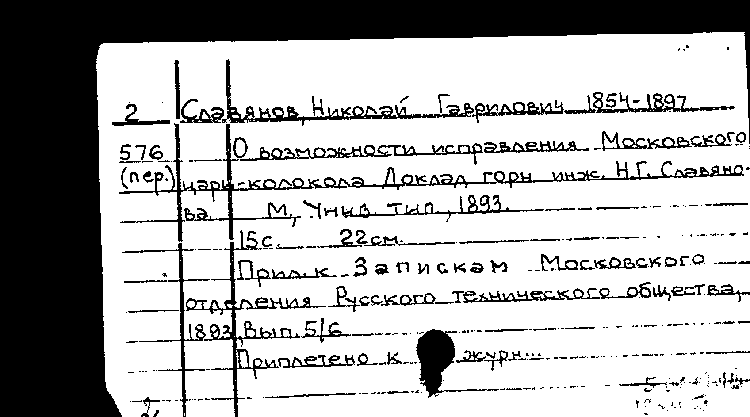 2 Славянов, Николай Гаврилович 1854-1897
576 О возможности исправления Московского
(пер.) царь-колокола Доклад горн инж. Н.Г. Славяно-
ва М, Унив тип, 1893.
15с. 22см.
Прил. к Запискам Московского
отделения Русского технического общества,
1893, Вып. 5/6
Приплетено к журн...